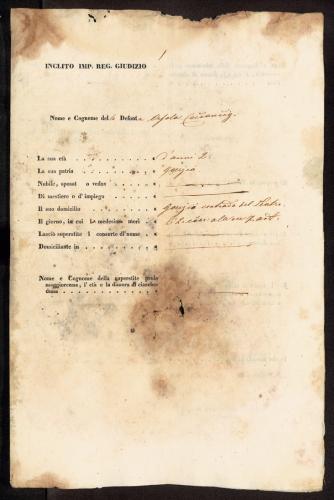 1
INCLITO IMP. REG. GIUDIZIO
Nome e Cognome del Defont
La sua età d'anni 2
La sua patria Gorizia
Nubile, sposat o vedov
Di mestiere o d'impiego
Il suo domicilio Gorizia contrada del
Il giorno, in cui l medesim morì
Lasciò superstite l consorte di nome
Domiciliante in
Nome e Cognome della superstite prole
maggiorenne, l' età e la dimora di ciasche-
duno